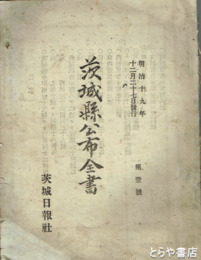 明治十九年
十二月二十七日發行
茨城縣公布全書
茨城日報社
とらや書店